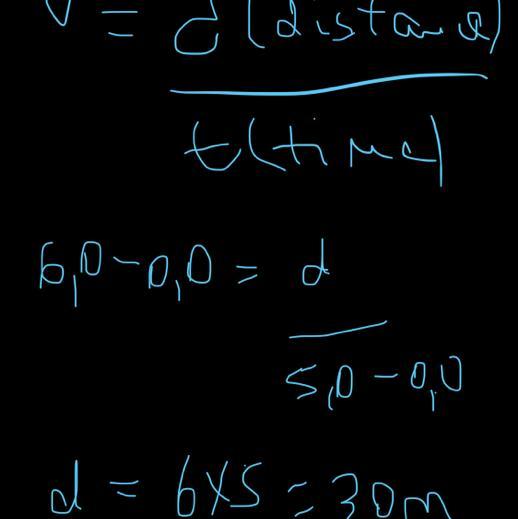 V = d (distance)
t(time)
6,0 - 0,0 = d
5,0 - 0,0
d = 6x5 = 30m